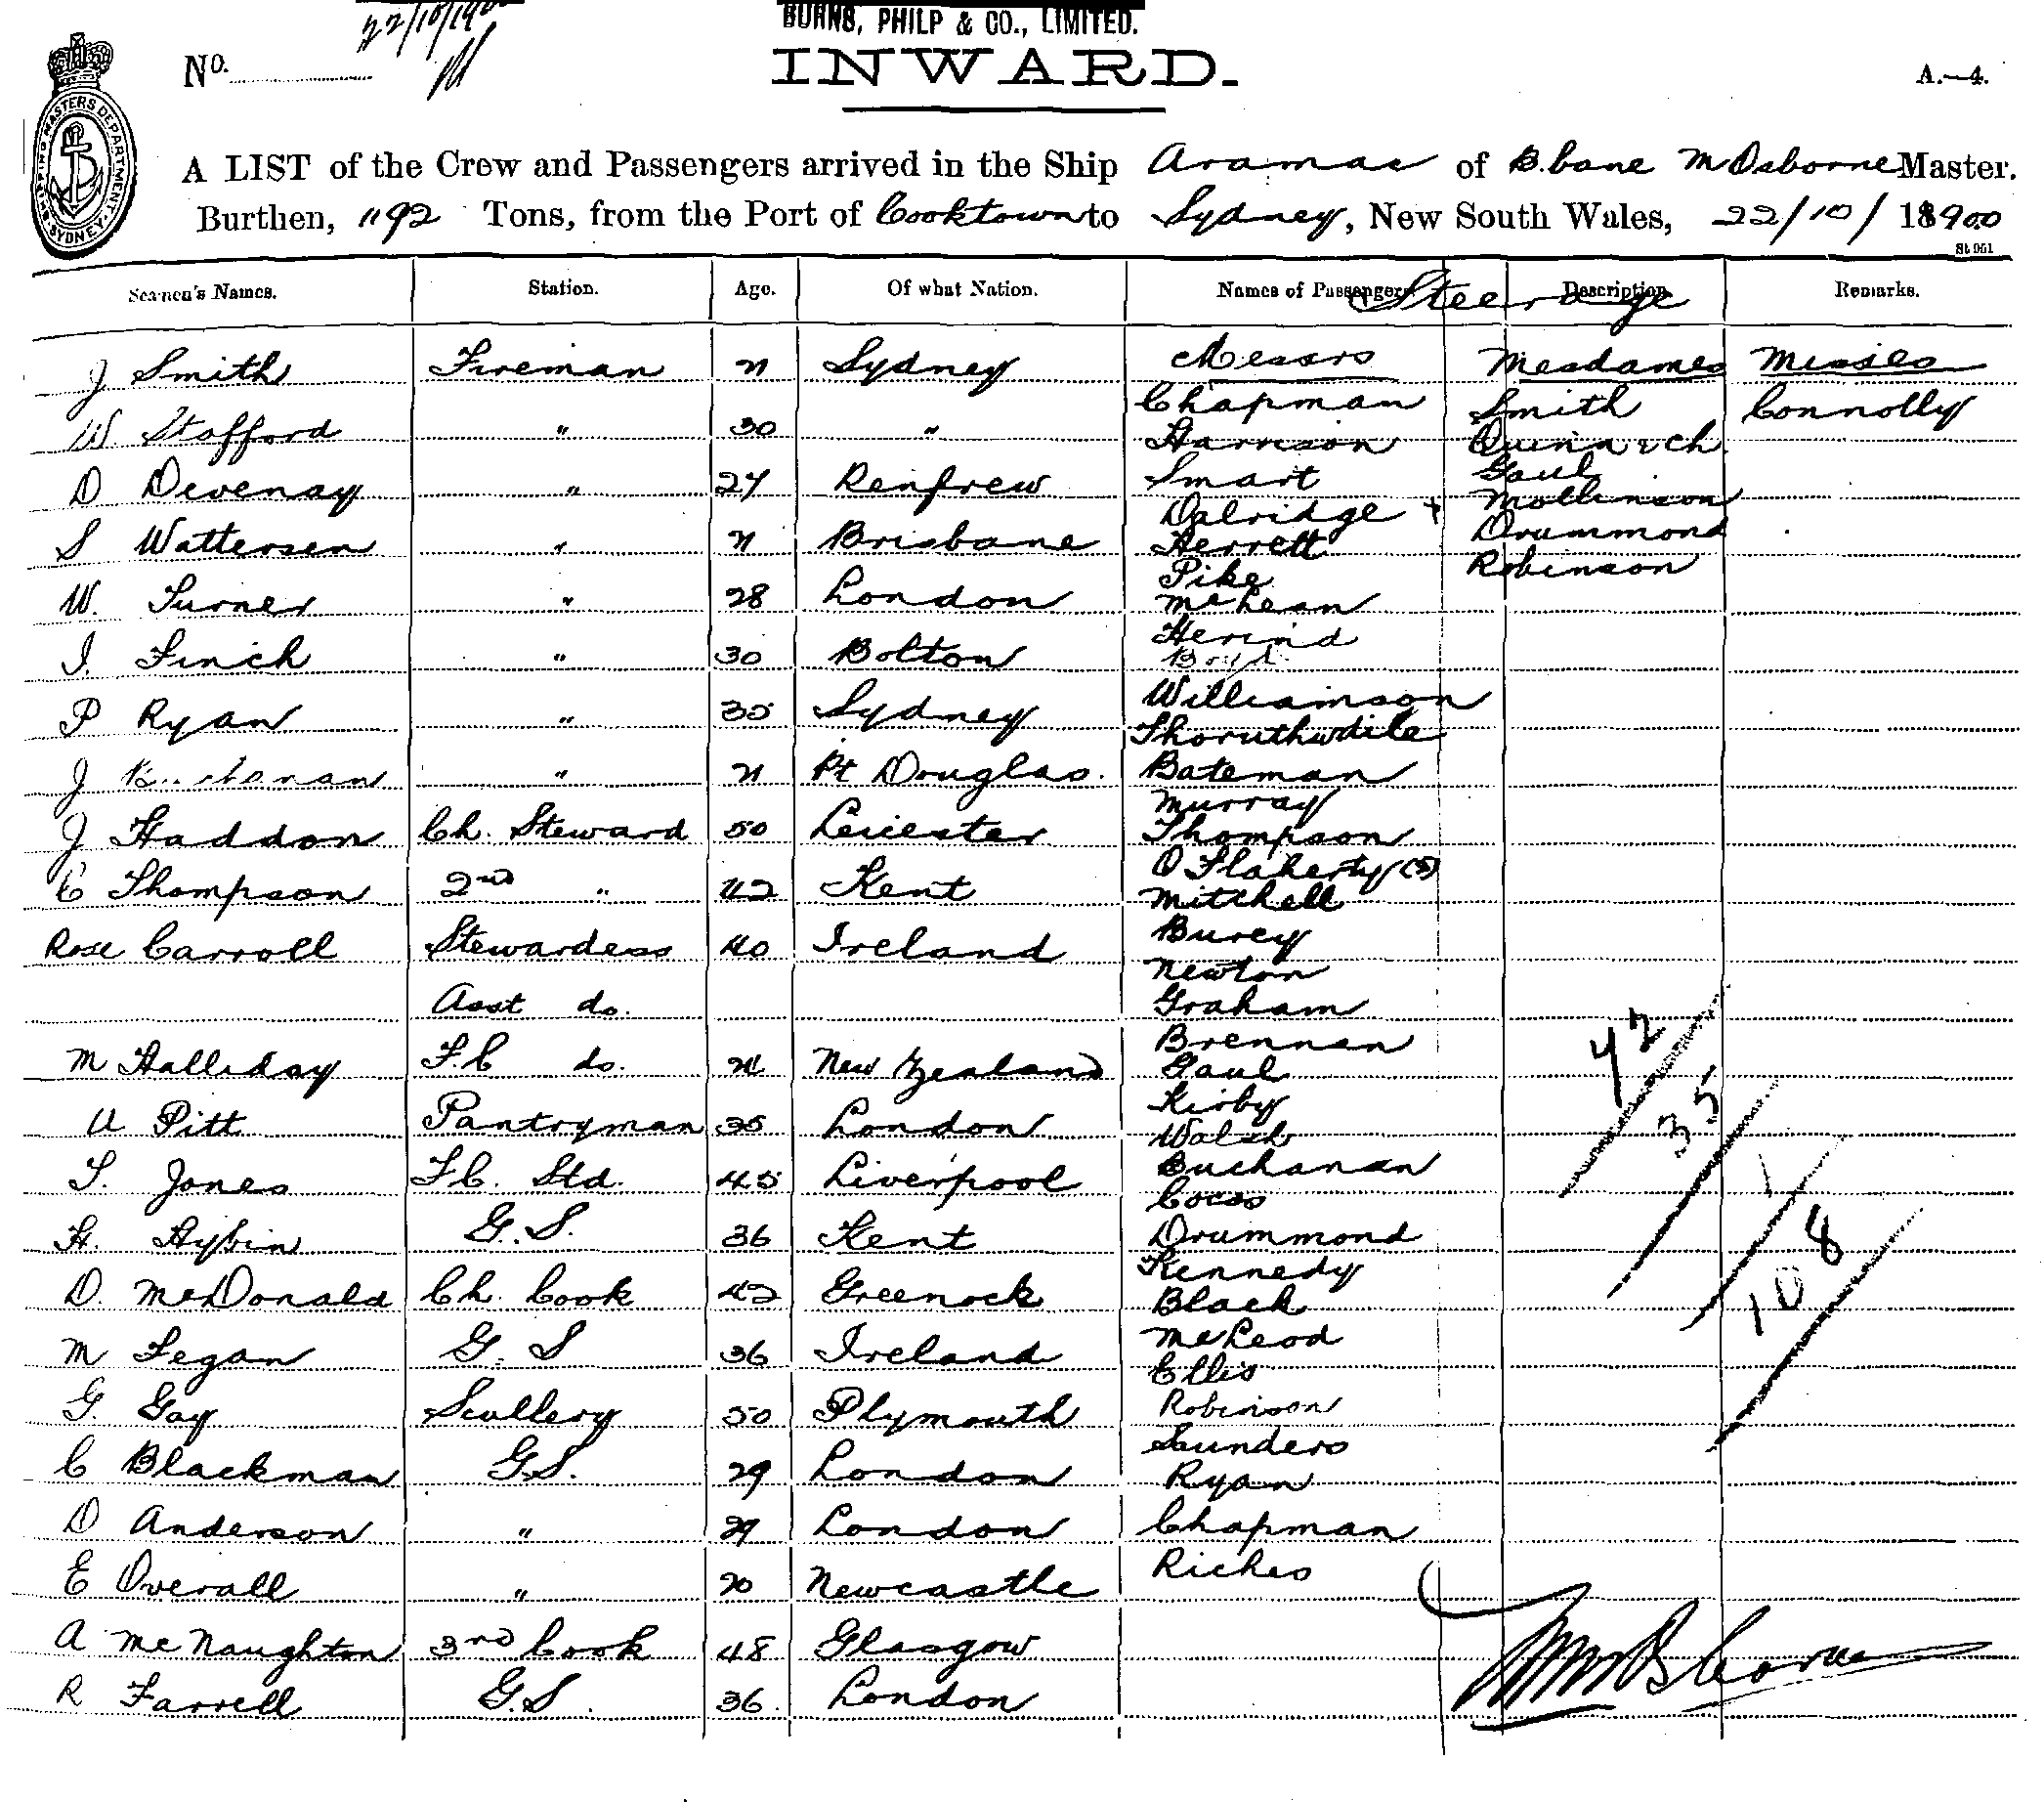 22/10/190
BURNS, PHILP & CO., LIMITED.
No.
INWARD.
A.—4.
SHIPPING MASTERS DEPARTMENT SYDNEY
A LIST of the Crew and Passengers arrived in the Ship Aramac of B.bane M Osborne Master.
Burthen, 1192 Tons, from the Port of Cooktown to Sydney, New South Wales, 22/10/ 18900
St 961
Seamen's Names. Station. Age. Of what Nation. Names of Passengers Description Remarks.
Steerage
J Smith Fireman 21 Sydney Messrs Mesdames Misses
Chapman Smith Connolly
W. Stafford " 30 " Harrison
D Devenay " 24 Renfrew Smart Gaul
Dalridge + Mollinson
S Wattersen " 21 Brisbane Herrett Drummond
Pike Robinson
W. Turner " 28 London McLean
I. Finch " 30 Bolton Boyd
P Ryan " 30 Sydney Williamson
J " 21 Pt Douglas. Bateman
Murray
J Haddon Ch. Steward 50 Leicester Thompson
O Flaherty (3)
C Thompson 2nd " 42 Kent Mitchell
Rose Carroll Stewardess 40 Ireland Burey
Newton
Asst do. Graham
Brennan
M Halliday F.C do. 21 New Zealand Gaul
Kirby
A Pitt Pantryman 35 London Walsh
Buchanan
T. Jones F.C. Std. 45 Liverpool Cocos
H. Hybin G.S. 36 Kent Drummond
Kennedy
D. McDonald Ch. Cook 42 Greenock Black
M Fegan G. S 36 Ireland McLeod
Ellis
G. Gay Scullery 50 Plymouth Robinson
Saunders
C Blackman G.S. 29 London Ryan
D Anderson " 29 London Chapman
E Overall " 20 Newcastle Riches
A McNaughton 3rd Cook 48 Glasgow
R Farrell G.S. 36 London
42
35
1
108